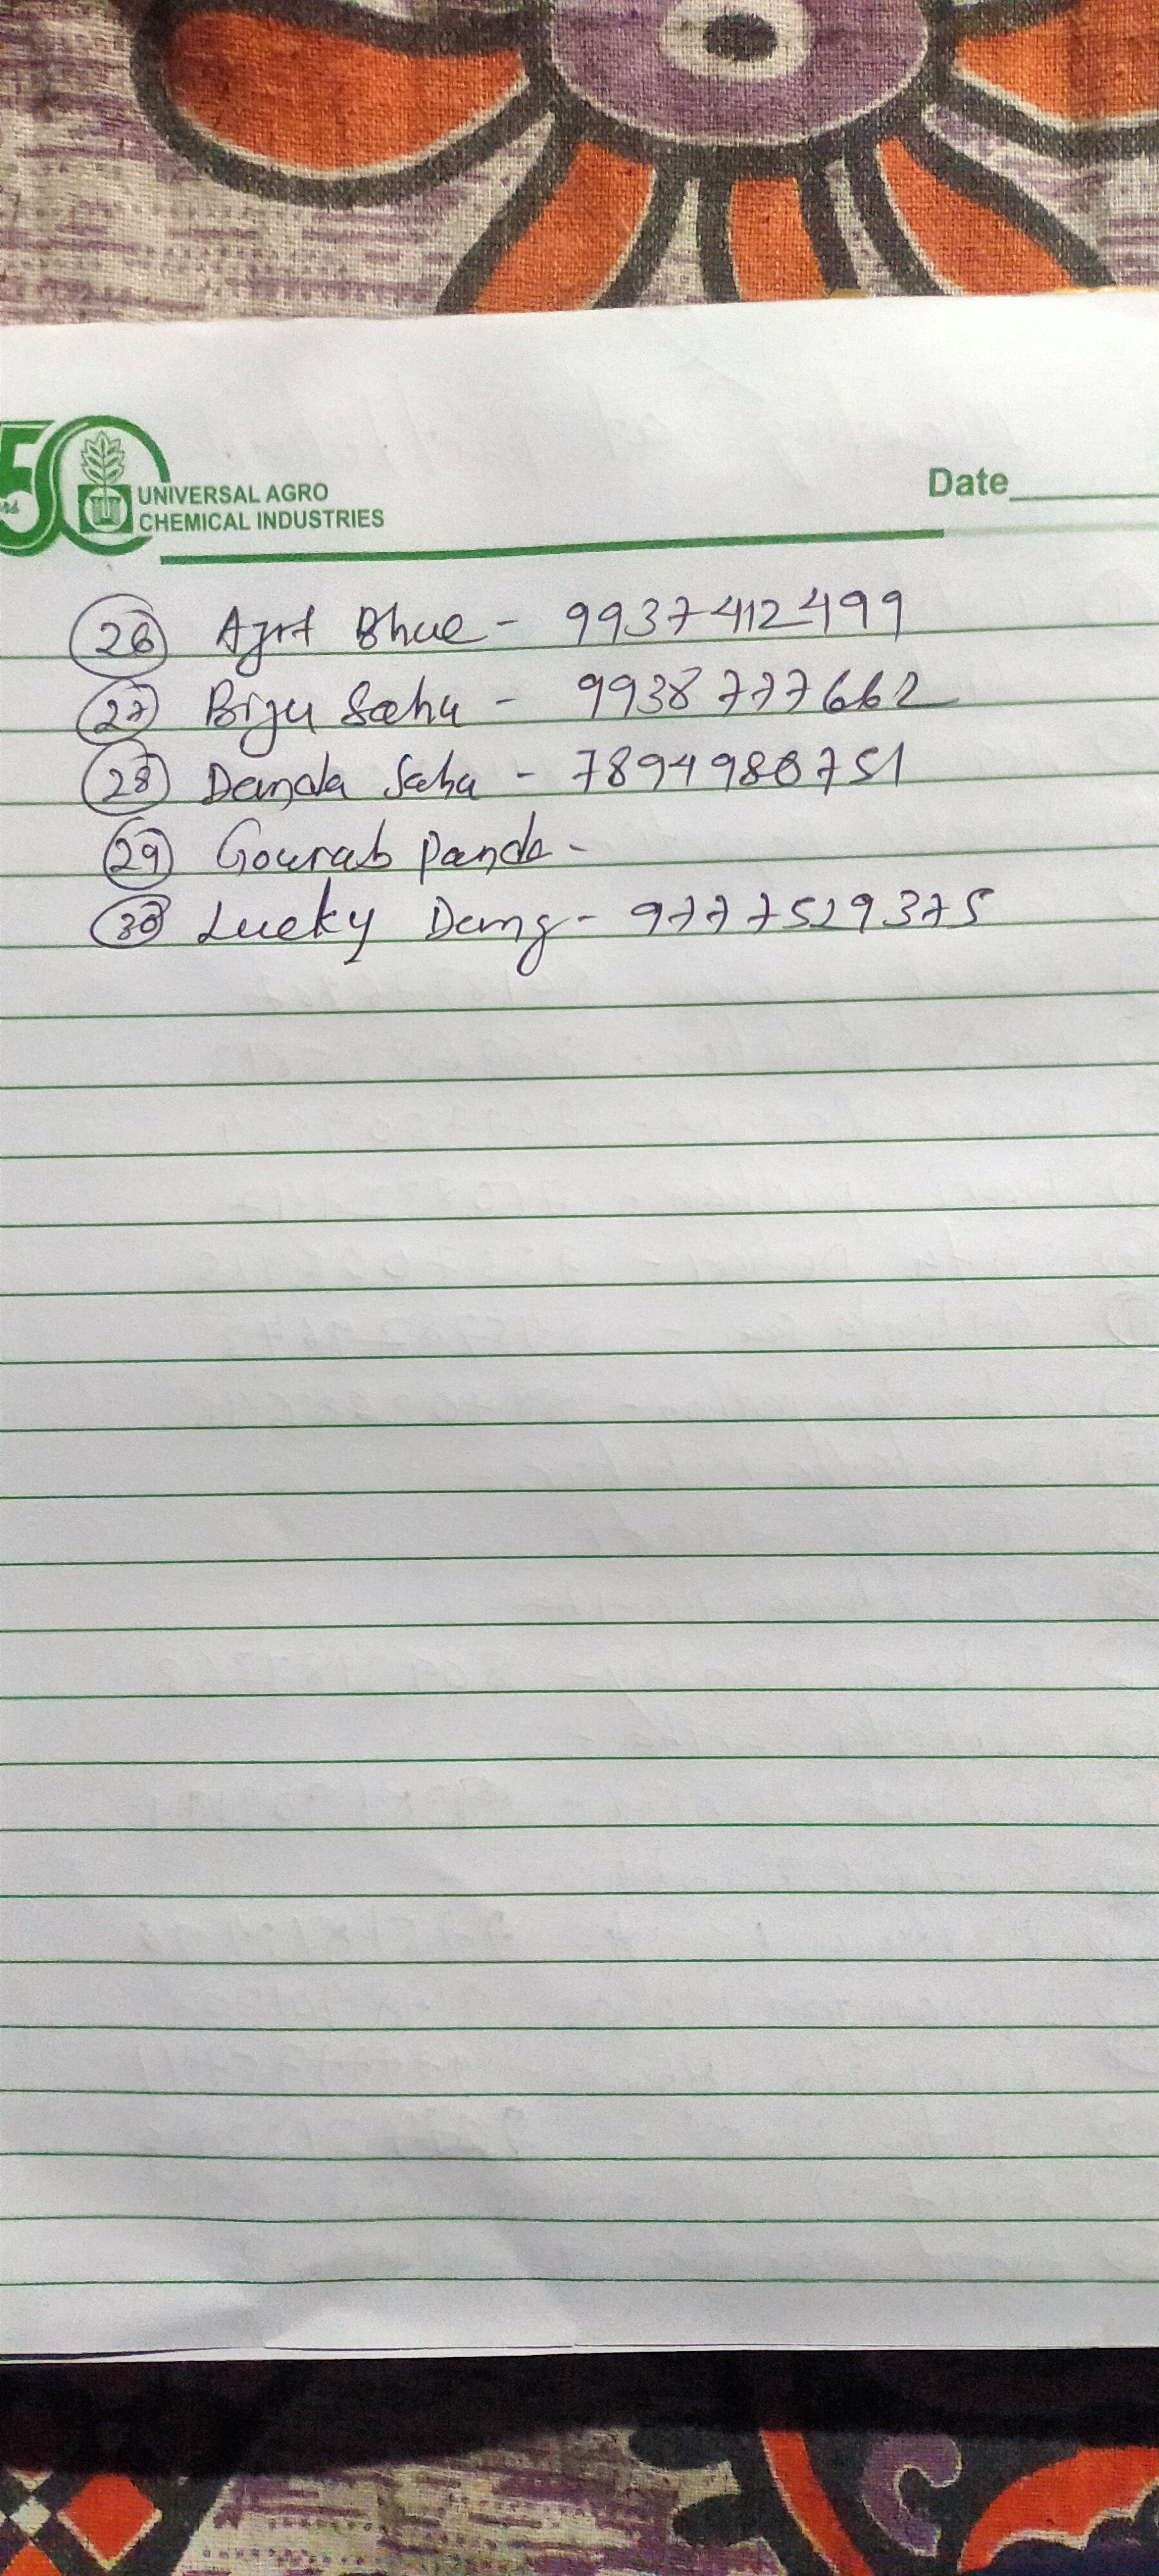 50
UNIVERSAL AGRO
CHEMICAL INDUSTRIES
Date
26 Ajit Bhue - 9937412499
27 Biju Sahu - 9938777662
28 Danda Sahu - 7894980751
29 Gourab Panda -
30 Lucky Dang - 9777529375